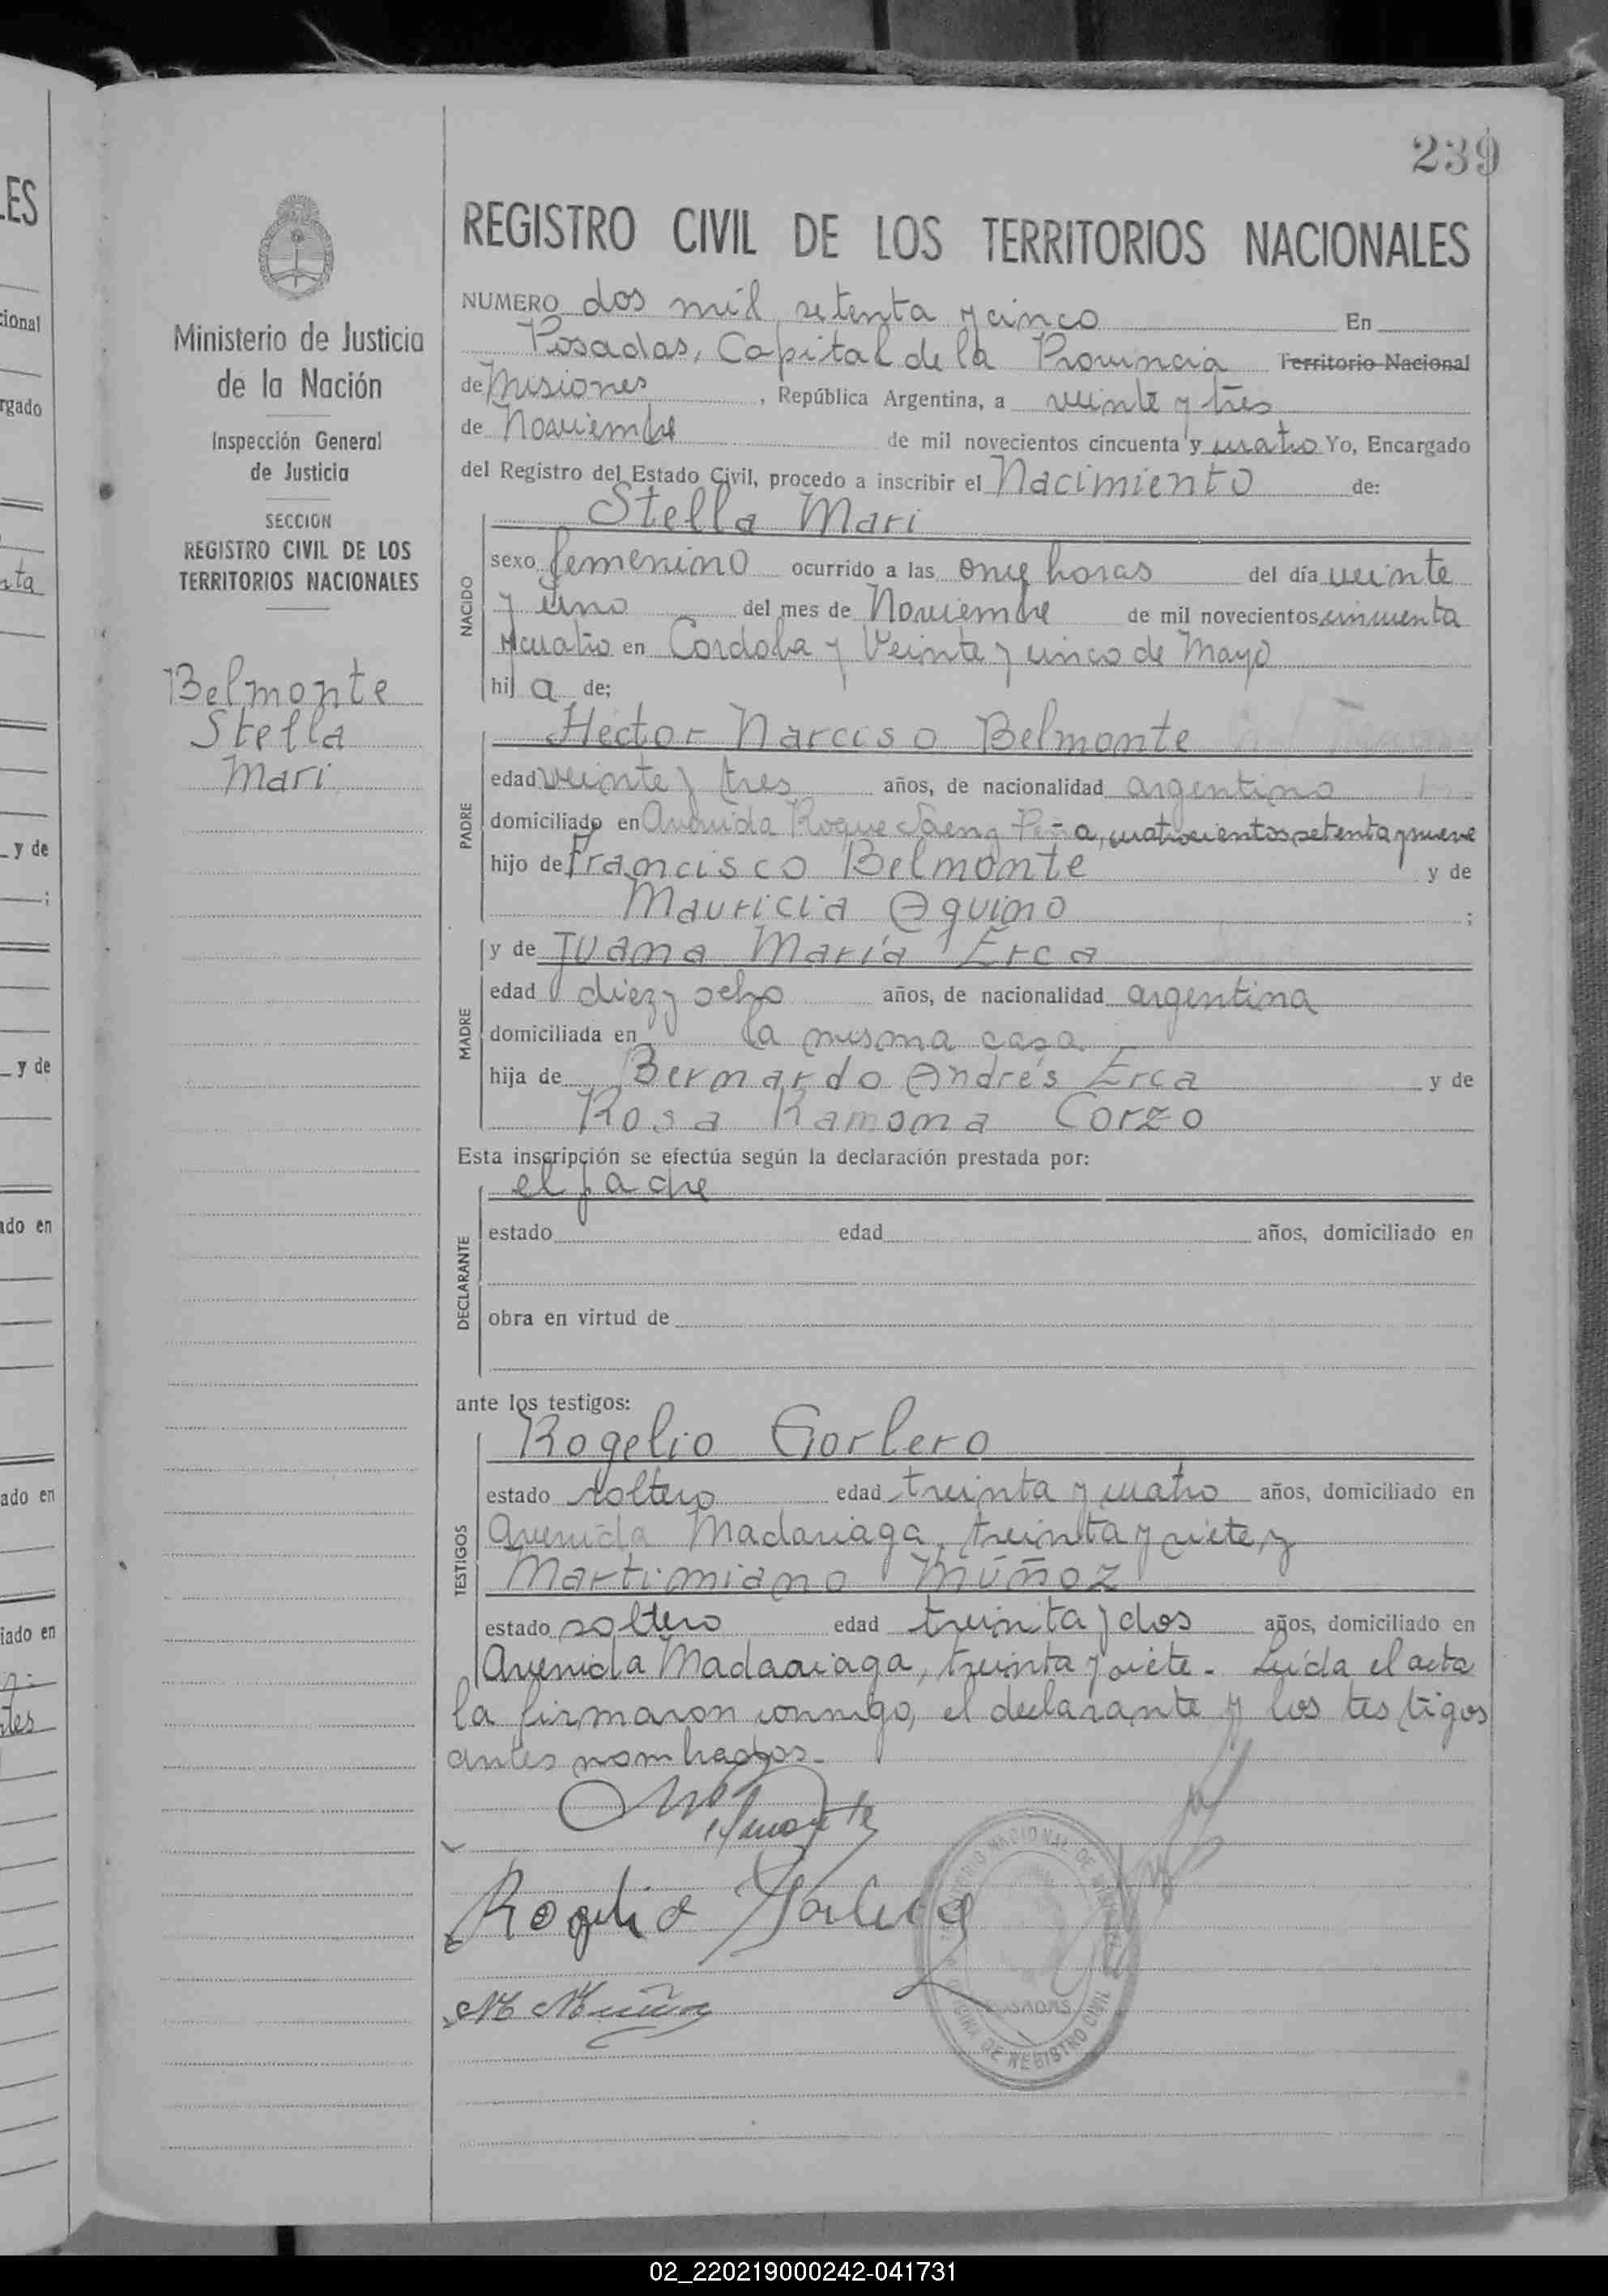 239
REGISTRO CIVIL DE LOS TERRITORIOS NACIONALES
Ministerio de Justicia
de la Nación
Inspección General
de Justicia
SECCION
REGISTRO CIVIL DE LOS
TERRITORIOS NACIONALES
Belmonte
Stella
Mari
NUMERO dos mil setenta y cinco En
Posadas, Capital de la Provincia Territorio Nacional
de Misiones, República Argentina, a veinte y tres
de Noviembre de mil novecientos cincuenta y cuatro Yo, Encargado
del Registro del Estado Civil, procedo a inscribir el Nacimiento de:
NACIDO
Stella Mari
sexo femenino ocurrido a las once horas del día veinte
y uno del mes de Noviembre de mil novecientos cincuenta
y cuatro en Cordoba y Veinte y cinco de Mayo
hij a de;
PADRE
Hector Narciso Belmonte
edad veinte y tres años, de nacionalidad argentino
domiciliado en Avenida Roque Saenz Peña, cuatrocientos setenta y nueve
hijo de Francisco Belmonte y de
Mauricia Aquino ;
MADRE
y de Juana María Erca
edad diez y ocho años, de nacionalidad argentina
domiciliada en la misma casa
hija de Bernardo Andrés Erca y de
Rosa Ramona Corzo
Esta inscripción se efectúa según la declaración prestada por:
DECLARANTE
el padre
estado edad años, domiciliado en
obra en virtud de
ante los testigos:
TESTIGOS
Rogelio Gorlero
estado soltero edad treinta y cuatro años, domiciliado en
Avenida Madariaga, treinta y siete y
Martimiano Múñoz
estado soltero edad treinta y dos años, domiciliado en
Avenida Madariaga, treinta y siete - Leída el acta
la firmaron conmigo, el declarante y los testigos
antes nombrados.
Rogelio Gorlero
M Muñoz
TERRITORIO NACIONAL DE MISIONES
POSADAS
OFICINA DE REGISTRO CIVIL
LES
cional
rgado
y de
;
y de
ado en
ado en
iado en
02_220219000242-041731